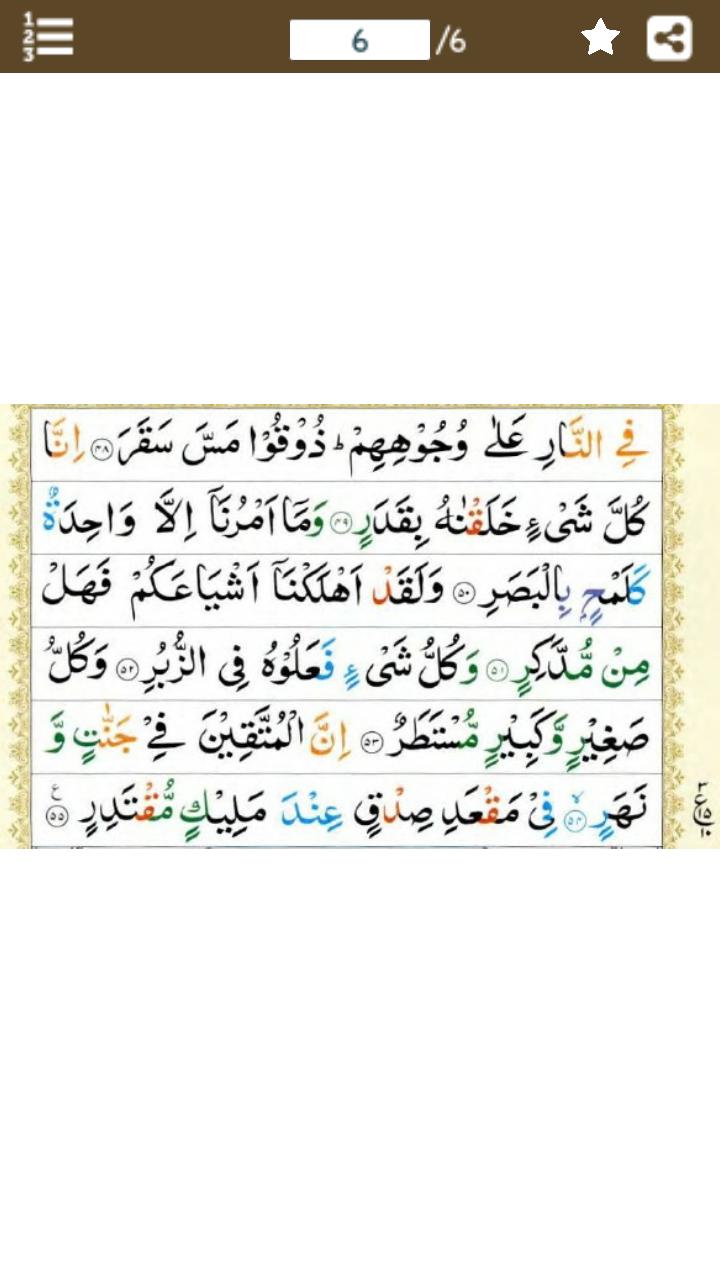 1
2
3
6 /6
فِي النَّارِ عَلٰى وُجُوْهِهِمْ ؕ ذُوْقُوْا مَسَّ سَقَرَ ﴿۴۸﴾ اِنَّا
كُلَّ شَیْءٍ خَلَقْنٰهُ بِقَدَرٍ ﴿۴۹﴾ وَمَاۤ اَمْرُنَاۤ اِلَّا وَاحِدَةٌ
كَلَمْحٍۭ بِالْبَصَرِ ﴿۵۰﴾ وَلَقَدْ اَهْلَكْنَاۤ اَشْيَاعَكُمْ فَهَلْ
مِنْ مُّدَّكِرٍ ﴿۵۱﴾ وَكُلُّ شَیْءٍ فَعَلُوْهُ فِی الزُّبُرِ ﴿۵۲﴾ وَكُلُّ
صَغِيْرٍ وَّكَبِيْرٍ مُّسْتَطَرٌ ﴿۵۳﴾ اِنَّ الْمُتَّقِيْنَ فِيْ جَنّٰتٍ وَّ
نَهَرٍ ﴿۵۴﴾ۙ فِیْ مَقْعَدِ صِدْقٍ عِنْدَ مَلِيْكٍ مُّقْتَدِرٍ ﴿۵۵﴾ ع
۳
ع ۱۵
۱۰